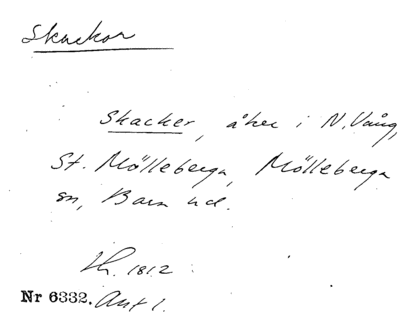 Skackor
Skacker, åker i N. Vång,
St. Mölleberga, Mölleberga
sn, Bara hd.
Lh. 1812
Nr 6332. Akt 1.